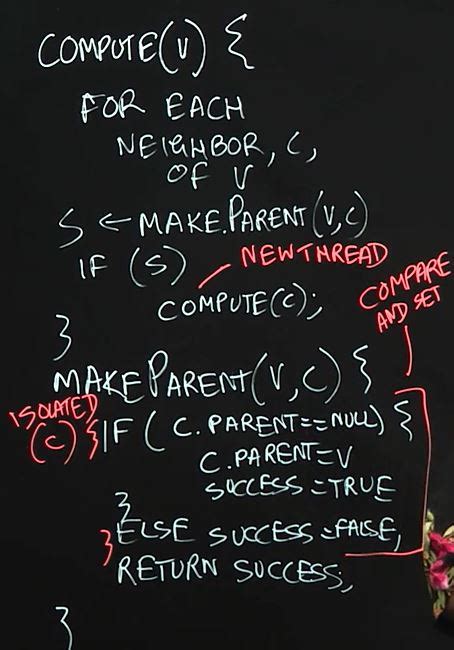 COMPUTE(V) {
FOR EACH
NEIGHBOR, C,
OF V
S ← MAKE.PARENT(V,C)
IF (S)
NEW THREAD
COMPUTE(C);
COMPARE
AND SET
}
MAKEPARENT(V,C) {
ISOLATED
(C) { IF ( C.PARENT==NULL) {
C.PARENT=V
SUCCESS=TRUE
}
} ELSE SUCCESS=FALSE;
RETURN SUCCESS;
}